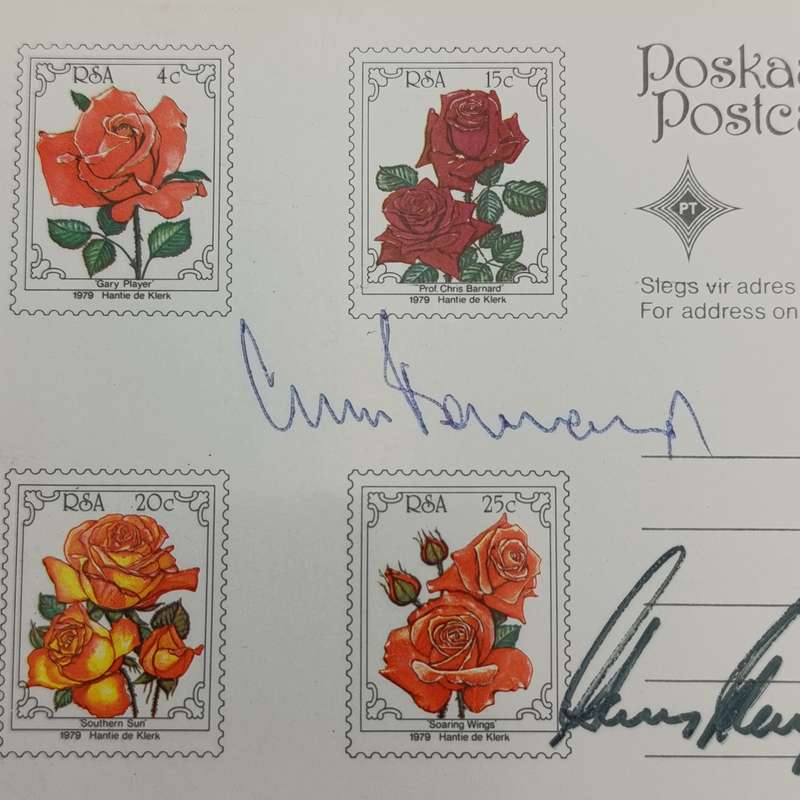 RSA 4c
'Gary Player'
1979 Hantie de Klerk
RSA 15c
'Prof. Chris Barnard'
1979 Hantie de Klerk
Poska
Postca
PT
Slegs vir adres
For address on
Chris Barnard
RSA 20c
'Southern Sun'
1979 Hantie de Klerk
RSA 25c
'Soaring Wings'
1979 Hantie de Klerk